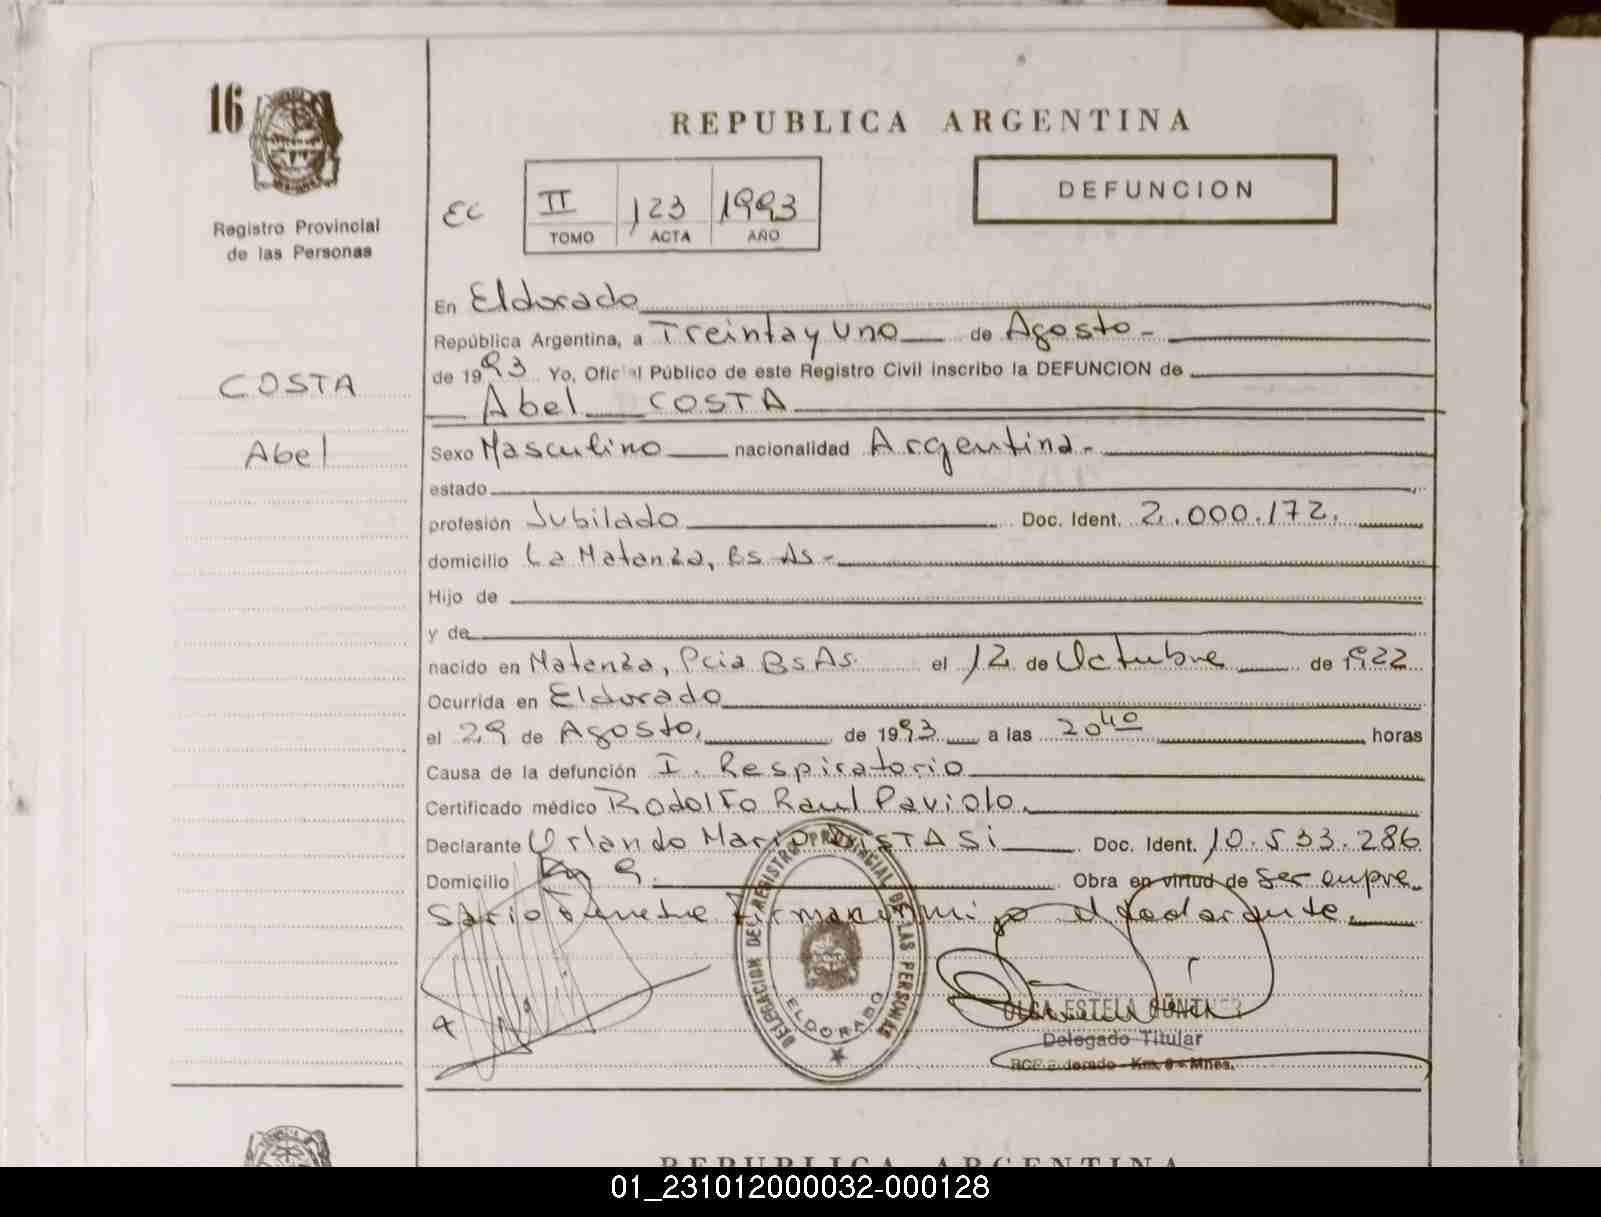 16
Registro Provincial
de las Personas
COSTA
Abel
REPUBLICA ARGENTINA
Ec
II 123 1993
TOMO ACTA AÑO
DEFUNCION
En Eldorado
República Argentina, a Treinta y Uno de Agosto -
de 1993 Yo, Oficial Público de este Registro Civil inscribo la DEFUNCION de
Abel COSTA
Sexo Masculino nacionalidad Argentina -
estado
profesión Jubilado Doc. Ident. 2.000.172.
domicilio La Matanza, Bs As -
Hijo de
y de
nacido en Matanza, Pcia Bs As. el 12 de Octubre de 1922
Ocurrida en Eldorado
el 29 de Agosto, de 1993 a las 20 40 horas
Causa de la defunción I. Respiratorio
Certificado médico Rodolfo Raul Paviolo.
Declarante Orlando Mario DiSTASi Doc. Ident. 10.533.286
Domicilio Km 9. Obra en virtud de ser empre
sario Funebre
DELEGACION DEL REGISTRO PROVINCIAL DE LAS PERSONAS
ELDORADO
OLGA ESTELA
Delegado Titular
Eldorado - Km. 9 - Mnes.
REPUBLICA ARGENTINA
01_231012000032-000128